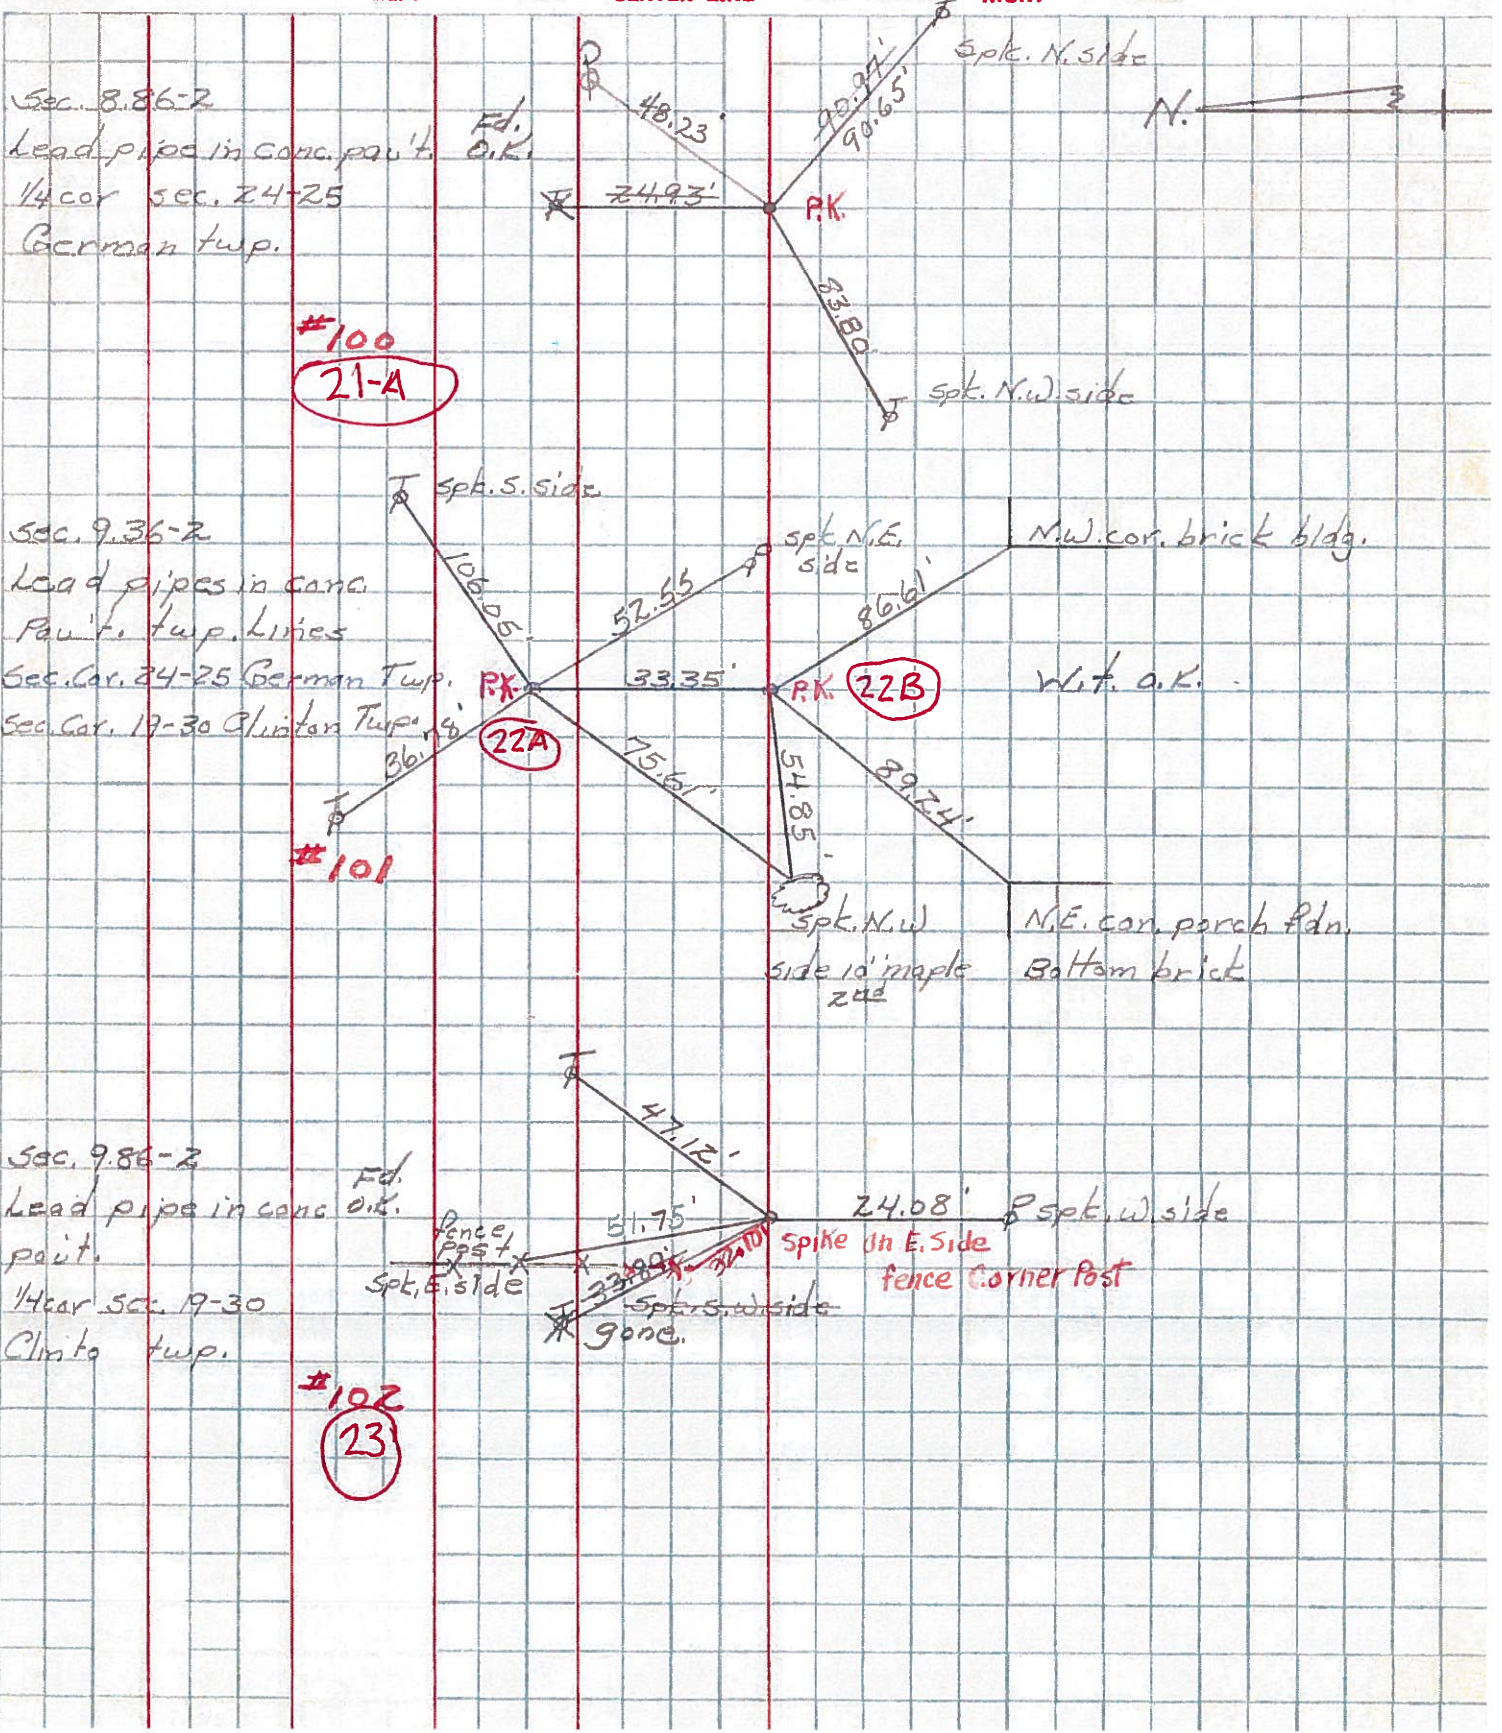 spk. N. side
48.23'
90.97'
90.65'
N.
Sec. 8.86-2
Lead pipe in conc. pav't.
1/4 cor sec. 24-25
German twp.
Fd.
O.K.
24.93'
P.K.
83.80
spk. N.W. side
#100
21-A
spk. S. side
Sec. 9.36-2
Lead pipes in conc.
Pav't. twp. Lines
Sec. Cor. 24-25 German Twp.
Sec. Cor. 19-30 Clinton Twp.
106.05'
52.55
spk. N.E.
side
86.61'
N.W. cor. brick bldg.
P.K.
33.35'
P.K.
22B
W.t. o.k.
22A
75.61'
54.85'
89.24'
#101
spk. N.W
side 10" maple
2nd
N.E. cor. porch fdn.
Bottom brick
47.12'
Sec. 9.86-2
Lead pipe in conc
pav't.
1/4 cor sec. 19-30
Clinto twp.
Fd.
O.K.
fence
post
51.75'
24.08'
spk. W. side
Spk. E. side
33.89'
32.10'
Spike on E. Side
fence Corner Post
spk. S.W. side
gone.
#102
23